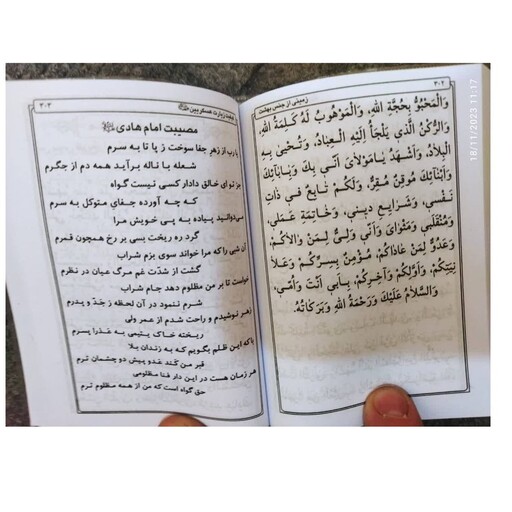 ۳۰۲
زمینی از جنس بهشت
وَالْمَحْبُوُّ بِحُجَّةِ اللهِ، وَالْمَوْهُوبُ لَهُ كَلِمَةُ اللهِ،
وَالرُّكْنُ الَّذي يَلْجَأُ اِلَيْهِ الْعِبادُ، وَتُحْيى بِهِ
الْبِلادُ، وَاَشْهَدُ يامَوْلايَ اَنّي بِكَ وَبِابآئِكَ
وَاَبْنآئِكَ مُوقِنٌ مُقِرٌّ، وَلَكُمْ تابِعٌ في ذاتِ
نَفْسي، وَشَرايِعِ ديني، وَخاتِمَةِ عَمَلي،
وَمُنْقَلَبي وَمَثْوايَ وَاَنّي وَلِيٌّ لِمَنْ والاكُمْ،
وَعَدُوٌّ لِمَنْ عاداكُمْ، مُؤْمِنٌ بِسِرِّكُمْ وَعَلا
نِيَتِكُمْ، وَاَوَّلِكُمْ وَآخِرِكُمْ، بِاَبي اَنْتَ وَاُمّي،
وَالسَّلامُ عَلَيْكَ وَرَحْمَةُ اللهِ وَبَرَكاتُهُ.
زیارت عسکریین
۳۰۳
مصیبت امام هادی
یا رب از زهر جفا سوخت ز پا تا به سرم
شعله با ناله برآید همه دم از جگرم
جز تو ای خالق دادار کسی نیست گواه
که چه آورده جفای متوکل به سرم
می‌دوانید پیاده به پی خویش مرا
گرد ره ریخت بسی بر رخ همچون قمرم
آن شبی را که مرا خواند سوی بزم شراب
گشت از شدّت غم مرگ عیان در نظرم
خواست تا بر من مظلوم دهد جام شراب
شرم ننمود در آن لحظه ز جدّ و پدرم
زهر نوشیدم و راحت شدم از عمر ولی
ریخته خاک یتیمی به عذرا پسرم
با که این ظلم بگویم که به زندان بلا
قبر من کند عدو پیش دو چشمان ترم
هر زمان هست در این دار فنا مظلومی
حق گواه است که من از همه مظلوم ترم
18/11/2023 11:17